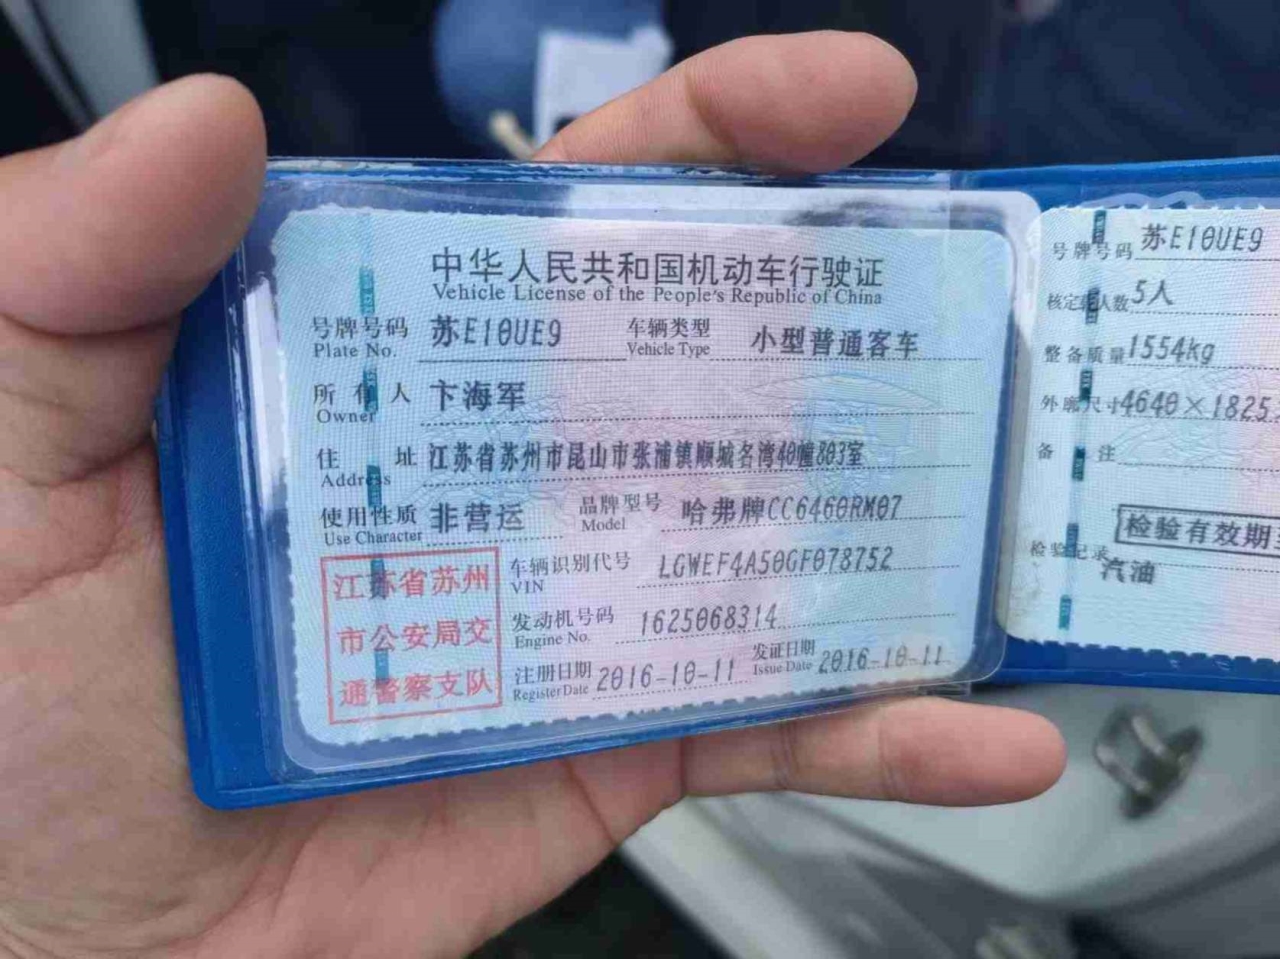 中华人民共和国机动车行驶证
Vehicle License of the People's Republic of China
号牌号码 苏E10UE9 车辆类型 小型普通客车
Plate No. Vehicle Type
所有人 卞海军
Owner
住址 江苏省苏州市昆山市张浦镇顺城名湾40幢803室
Address
使用性质 非营运 品牌型号 哈弗牌CC6460RM07
Use Character Model
车辆识别代号 LGWEF4A50GF078752
VIN
发动机号码 1625068314
Engine No.
注册日期 2016-10-11 发证日期 2016-10-11
Register Date Issue Date
江苏省苏州
市公安局交
通警察支队
号牌号码 苏E10UE9
核定载人数 5人
整备质量 1554kg
外廓尺寸 4640×1825
备注
检验有效期
检验记录
汽油